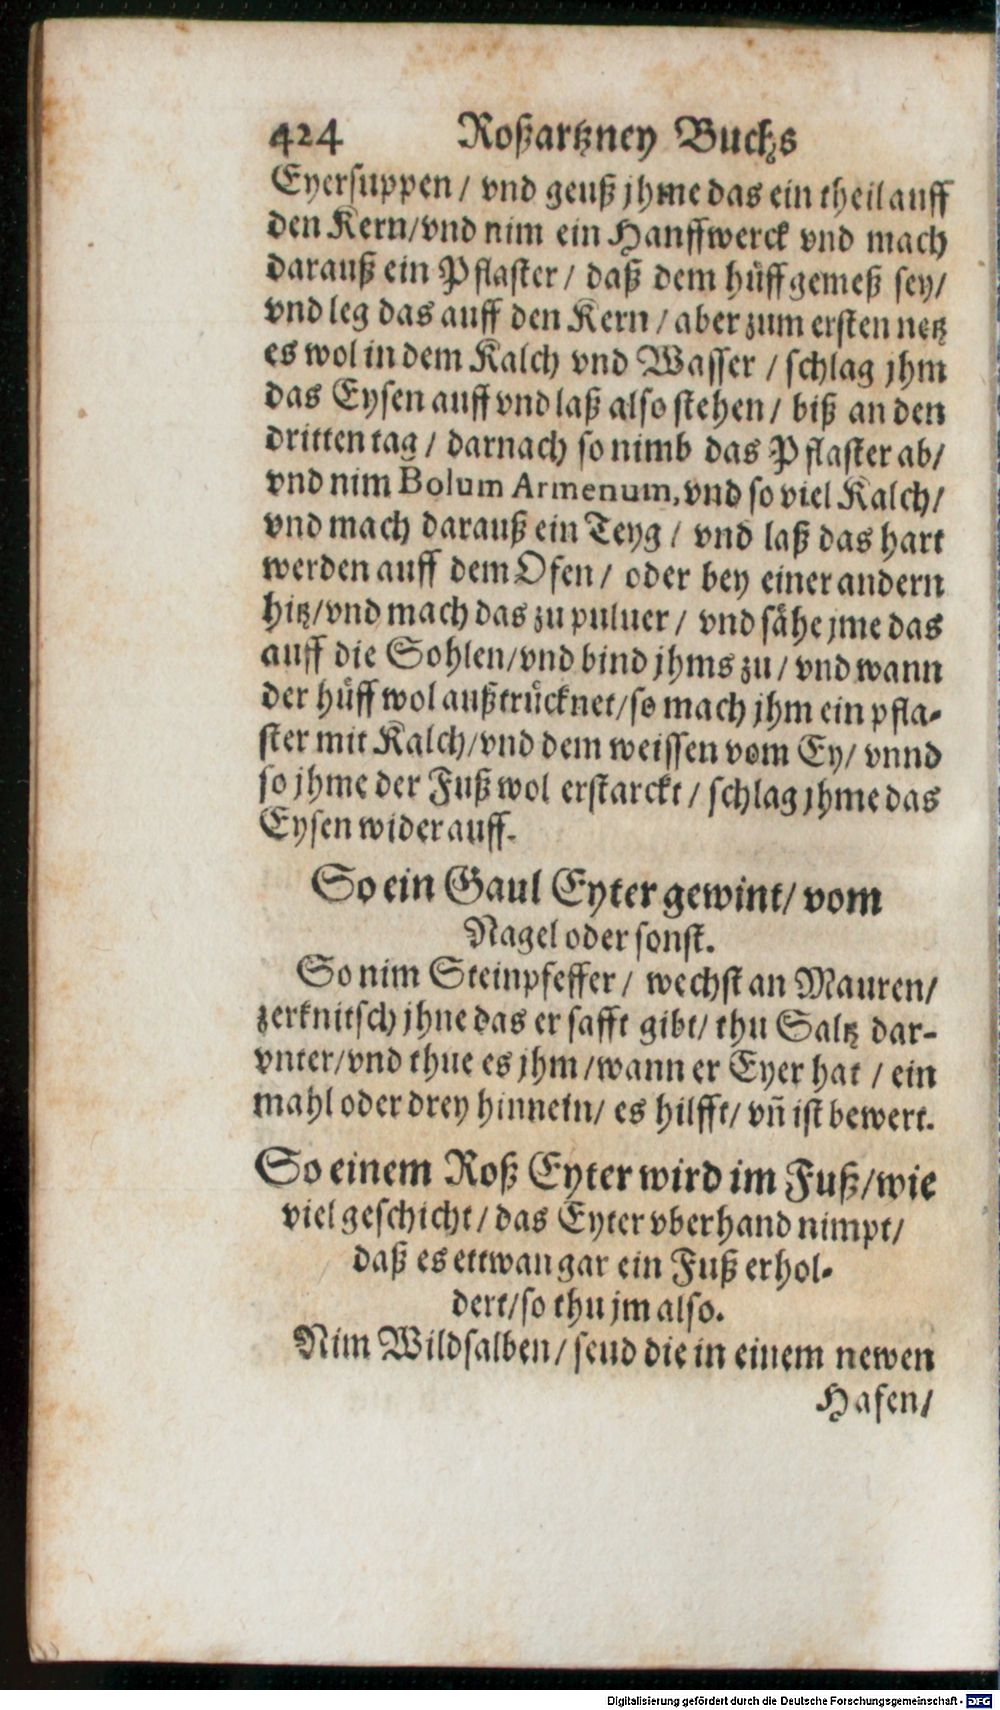 424 Roßartzney Buchs
Eyersuppen / vnd geuß jhme das ein theil auff
den Kern/vnd nim ein Hanffwerck vnd mach
darauß ein Pflaster / daß dem hůff gemeß sey/
vnd leg das auff den Kern / aber zum ersten netz
es wol in dem Kalch vnd Wasser / schlag jhm
das Eysen auff vnd laß also stehen / biß an den
dritten tag / darnach so nimb das Pflaster ab/
vnd nim Bolum Armenum, vnd so viel Kalch/
vnd mach darauß ein Teyg / vnd laß das hart
werden auff dem Ofen / oder bey einer andern
hitz/vnd mach das zu puluer / vnd såhe jme das
auff die Sohlen/vnd bind jhms zu / vnd wann
der hůff wol außtrůcknet/so mach jhm ein pfla-
ster mit Kalch/vnd dem weissen vom Ey/ vnnd
so jhme der Fuß wol erstarckt / schlag jhme das
Eysen wider auff.
So ein Gaul Eyter gewint/ vom
Nagel oder sonst.
So nim Steinpfeffer / wechst an Mauren/
zerknitsch jhne das er safft gibt/ thu Saltz dar-
vnter/vnd thue es jhm /wann er Eyer hat / ein
mahl oder drey hinnein/ es hilfft/ vñ ist bewert.
So einem Roß Eyter wird im Fuß/wie
viel geschicht / das Eyter vberhand nimpt/
daß es ettwan gar ein Fuß erhol-
dert/so thu jm also.
Nim Wildsalben / seud die in einem newen
Hafen/
Digitalisierung gefördert durch die Deutsche Forschungsgemeinschaft - DFG